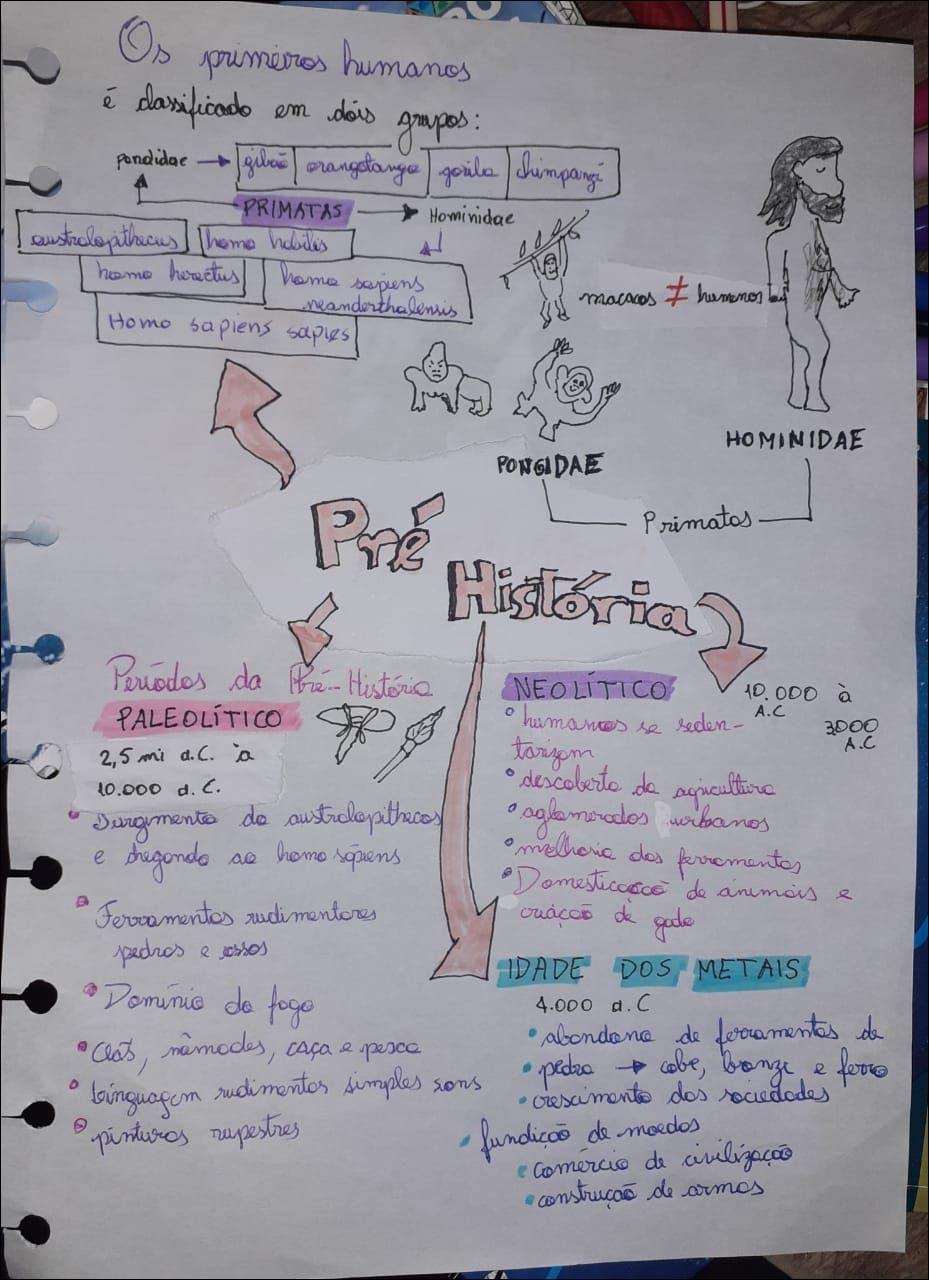 Os primeiros humanos
é classificado em dois grupos:
pondidae → gibão orangotango gorila chimpanzé
PRIMATAS → Hominidae
australopithecus homo habilis
homo herectus homo sapiens
neanderthalensis
Homo sapiens sapies
macacos ≠ humanos
PONGIDAE
HOMINIDAE
Primatas
Pré
História
Períodos da Pré-História
PALEOLÍTICO
2,5 mi a.C. à
10.000 a.C.
Surgimento do australopithecos
e chegando ao homo sápiens
Ferramentas rudimentares
pedras e ossos
Domínio do fogo
Clãs, nâmades, caça e pesca
linguagem rudimentar simples sons
pinturas rupestres
NEOLÍTICO
10.000 à
3000
A.C
A.C
humanos se seden-
tarizam
descoberta da agricultura
aglomerados urbanos
melhoria das ferramentas
Domesticação de animais e
criação de gado
IDADE DOS METAIS
4.000 a.C
abandono de ferramentas de
pedra → cobe, bronze e ferro
crescimento das sociedades
fundição de moedas
comércio de civilização
construção de armas